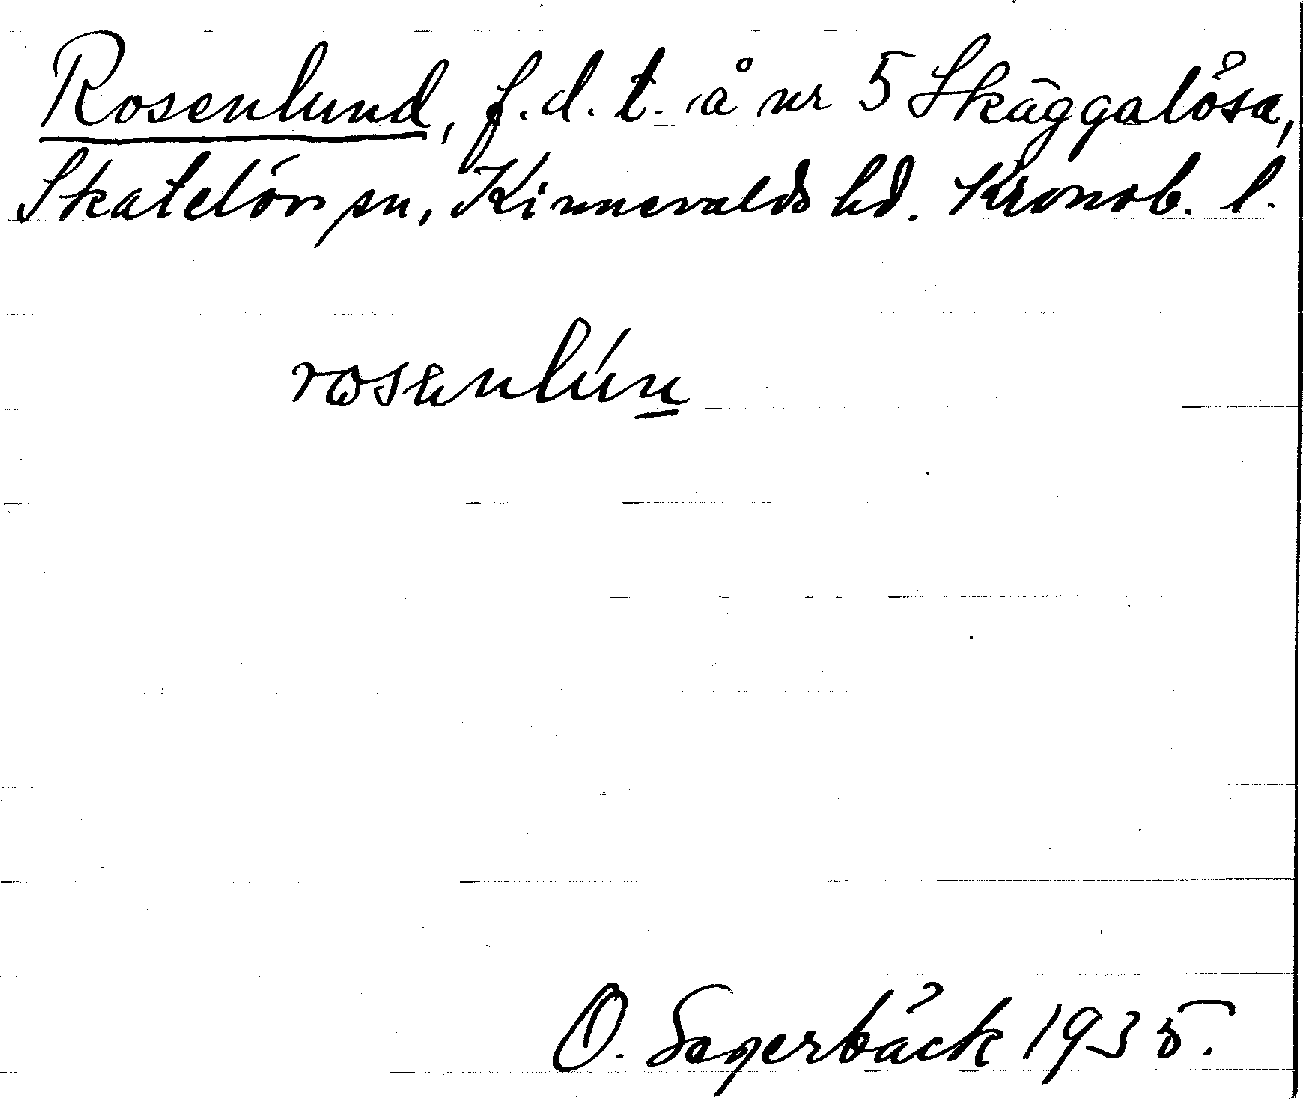 Rosenlund, f.d. t. å nr 5 Skäggalösa,
Skatelöv sn, Kinnevalds hd. Kronob. l.
rosenlún
O. Sagerbäck 1935.